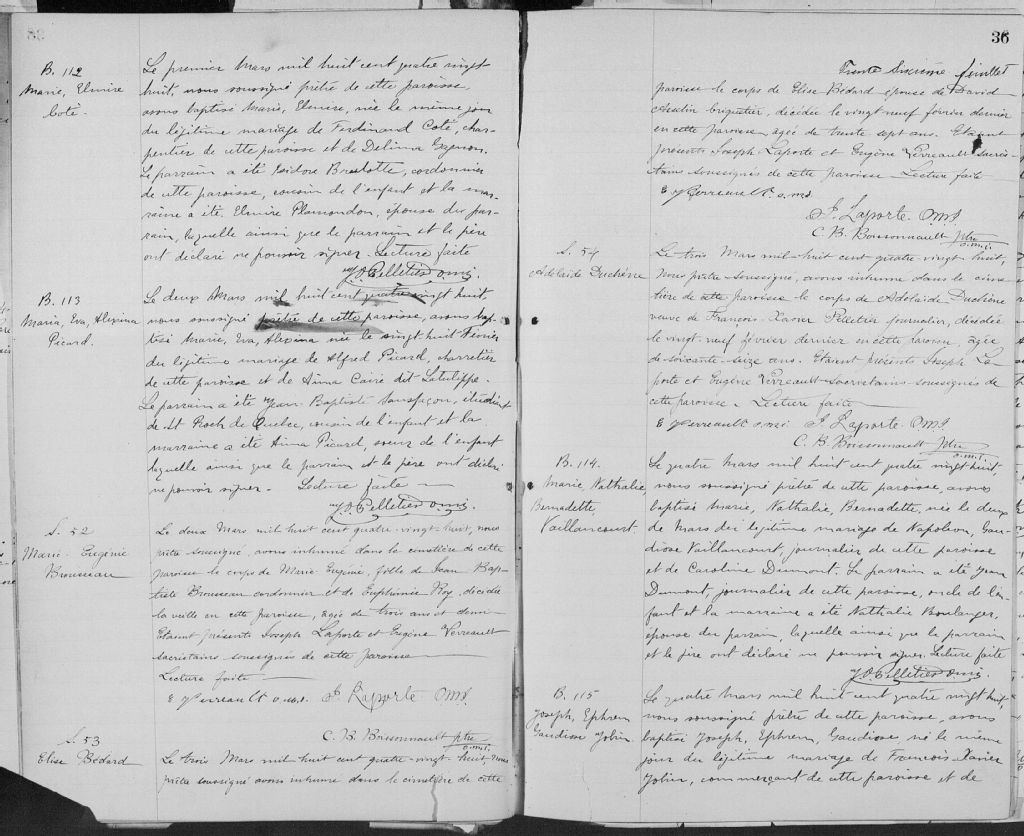 B. 112
Marie, Elmire
Coté.
Le premier Mars mil huit cent quatre vingt
huit, nous soussigné prêtre de cette paroisse,
avons baptisé Marie, Elmire, née le même jour
du légitime mariage de Ferdinand Coté, char-
pentier de cette paroisse et de Delima Gagnon.
Le parrain a été Isidore Brulotte, cordonnier
de cette paroisse, cousin de l'enfant et la mar-
raine a été Elmire Plamondon, épouse du par-
rain, laquelle ainsi que le parrain et le père
ont déclaré ne pouvoir signer. Lecture faite
J.O. Pelletier o.m.i.
B. 113
Maria, Eva, Alexina
Picard.
Le deux Mars mil huit cent quatre vingt huit,
nous soussigné prêtre de cette paroisse, avons bap-
tisé Marie, Eva, Alexina née le vingt huit Février
du légitime mariage de Alfred Picard, charretier
de cette paroisse et de Anna Caire dit Latulippe.
Le parrain a été Jean Baptiste Sansfaçon, étudiant
de St Roch de Quebec, cousin de l'enfant et la
marraine a été Anna Picard, soeur de l'enfant
laquelle ainsi que le parrain et le père ont déclaré
ne pouvoir signer. Lecture faite
J.O. Pelletier o.m.i.
S. 52
Marie-Eugénie
Brousseau
Le deux Mars mil huit cent quatre-vingt-huit, nous
prêtre soussigné, avons inhumé dans le cimetière de cette
paroisse le corps de Marie-Eugénie, fille de Jean Bap-
tiste Brousseau cordonnier et de Euphémie Roy, décédée
la veille en cette paroisse, agée de trois ans et demi
Etaient présents Joseph Laporte et Eugène Verreault
sacristains soussignés de cette paroisse
Lecture faite
E Verreault o.m.i. J. Laporte OMI.
C. B. Boissonnault ptre
o.m.i.
S. 53
Elise Bédard
Le trois Mars mil huit cent quatre-vingt-huit, nous
prêtre soussigné avons inhumé dans le cimetière de cette
36
Trente Sixième feuillet
paroisse le corps de Elise Bédard épouse de David
briquetier, décédée le vingt neuf février dernier
en cette paroisse, agée de trente sept ans. Etaient
présents Joseph Laporte et Eugène Verreault sacris-
tains soussignés de cette paroisse Lecture faite
E Verreault o.m.i.
J. Laporte OMI
C. B. Boissonnault ptre
o.m.i.
S. 54
Adelaide Duchêne
Le trois Mars mil-huit cent quatre vingt huit,
Nous prêtre soussigné, avons inhumé dans le cime-
tière de cette paroisse le corps de Adelaide Duchêne
veuve de François-Xavier Pelletier journalier, décédée
le vingt-neuf février dernier en cette paroisse, agée
de soixante-seize ans. Etaient présents Joseph La-
porte et Eugène Verreault Sacristains soussignés de
cette paroisse. Lecture faite
E Verreault o.m.i J. Laporte OMI.
C. B. Boissonnault ptre
o.m.i.
B. 114.
Marie, Nathalie
Bernadette,
Vaillancourt.
Le quatre Mars mil huit cent quatre vingt huit
nous soussigné prêtre de cette paroisse, avons
baptisé Marie, Nathalie, Bernadette, née le deux
de Mars du légitime mariage de Napoléon, Gau-
diose Vaillancourt, journalier de cette paroisse
et de Caroline Dumont. Le parrain a été Jean
Dumont, journalier de cette paroisse, oncle de l'en-
fant et la marraine a été Nathalie Boulanger,
épouse du parrain, laquelle ainsi que le parrain
et le père ont déclaré ne pouvoir signer. Lecture faite
J.O. Pelletier o.m.i.
B. 115
Joseph, Ephrem
Gaudiose Jobin
Le quatre Mars mil huit cent quatre vingt huit,
nous soussigné prêtre de cette paroisse, avons
baptisé Joseph, Ephrem, Gaudiose né le même
jour du légitime mariage de François-Xavier
Jobin, commerçant de cette paroisse et de